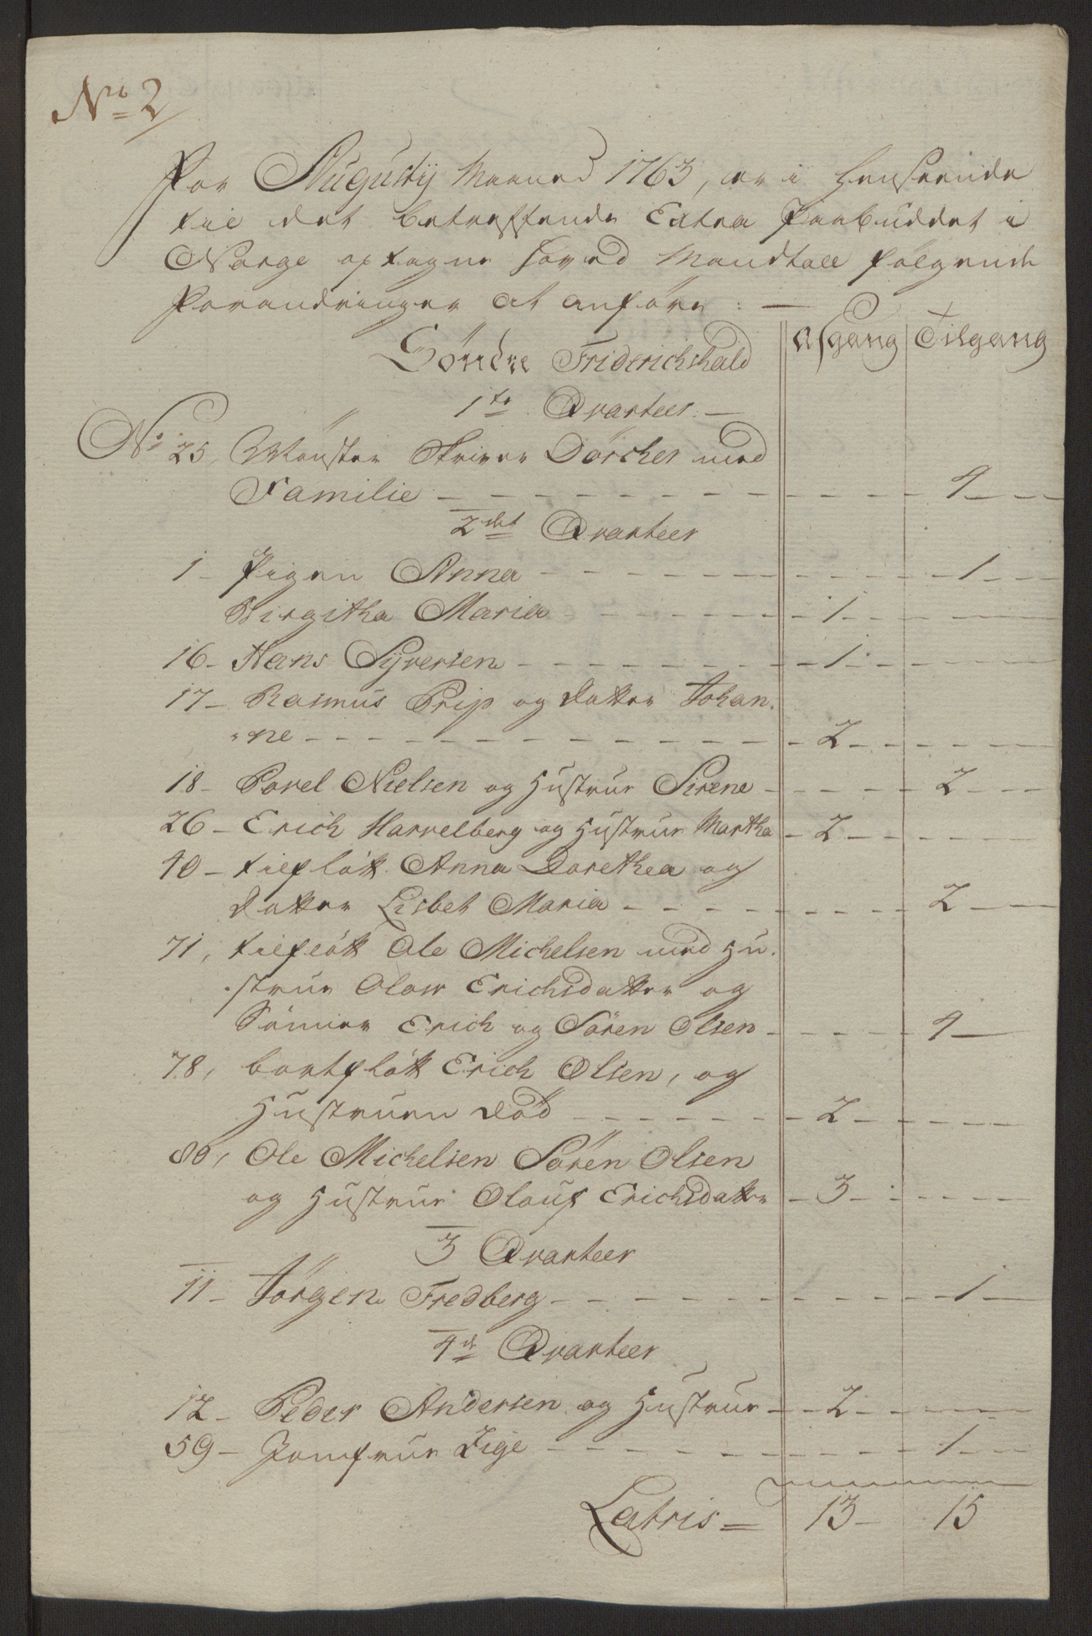 No 2
For Augustij Maaned 1763, er i henseende
til det betreffende Extra Paabuddet i
Norge optagne hoved Mandtall følgende
Forandringer at anføre: —
Afgang Tilgang
Söndre Friderichshald
1te Qvarteer. —
No 25, Mønster Skriver Dörcher med
Familie - - - 4 -
2det Qvarteer
1 - Pigen Anna - - - 1 -
Birgitha Maria - - - 1 -
16 - Hans Syversen - - - 1 -
17 - Rasmus Prip og datter Johan-
-ne - - - 2 -
18 - Povel Nielsen og Hustrue Sirene - - - 2 -
26 - Erich Harrelberg og Hustrue Martha - 2 -
40 - tilfløtt Anna Dorethea og
datter Lisbet Maria - - - 2 -
71, tilfløtt Ole Michelsen med Hu-
-strue Olow Erichsdatter og
Sönner Erich og Sören Olsen - - - 4 -
78, bortfløtt Erich Olsen, og
Hustruen död - - - 2 -
80, Ole Michelsen Sören Olsen
og Hustrue Olouf Erichsdatter - 3 -
3 Qvarteer
11 - Jörgen Fredberg - - - 1 -
4de Qvarteer
12 - Peder Andersen og Hustrue - - 2 -
59 - Jomfrue Zige - - - 1 -
Latris = 13 - 15